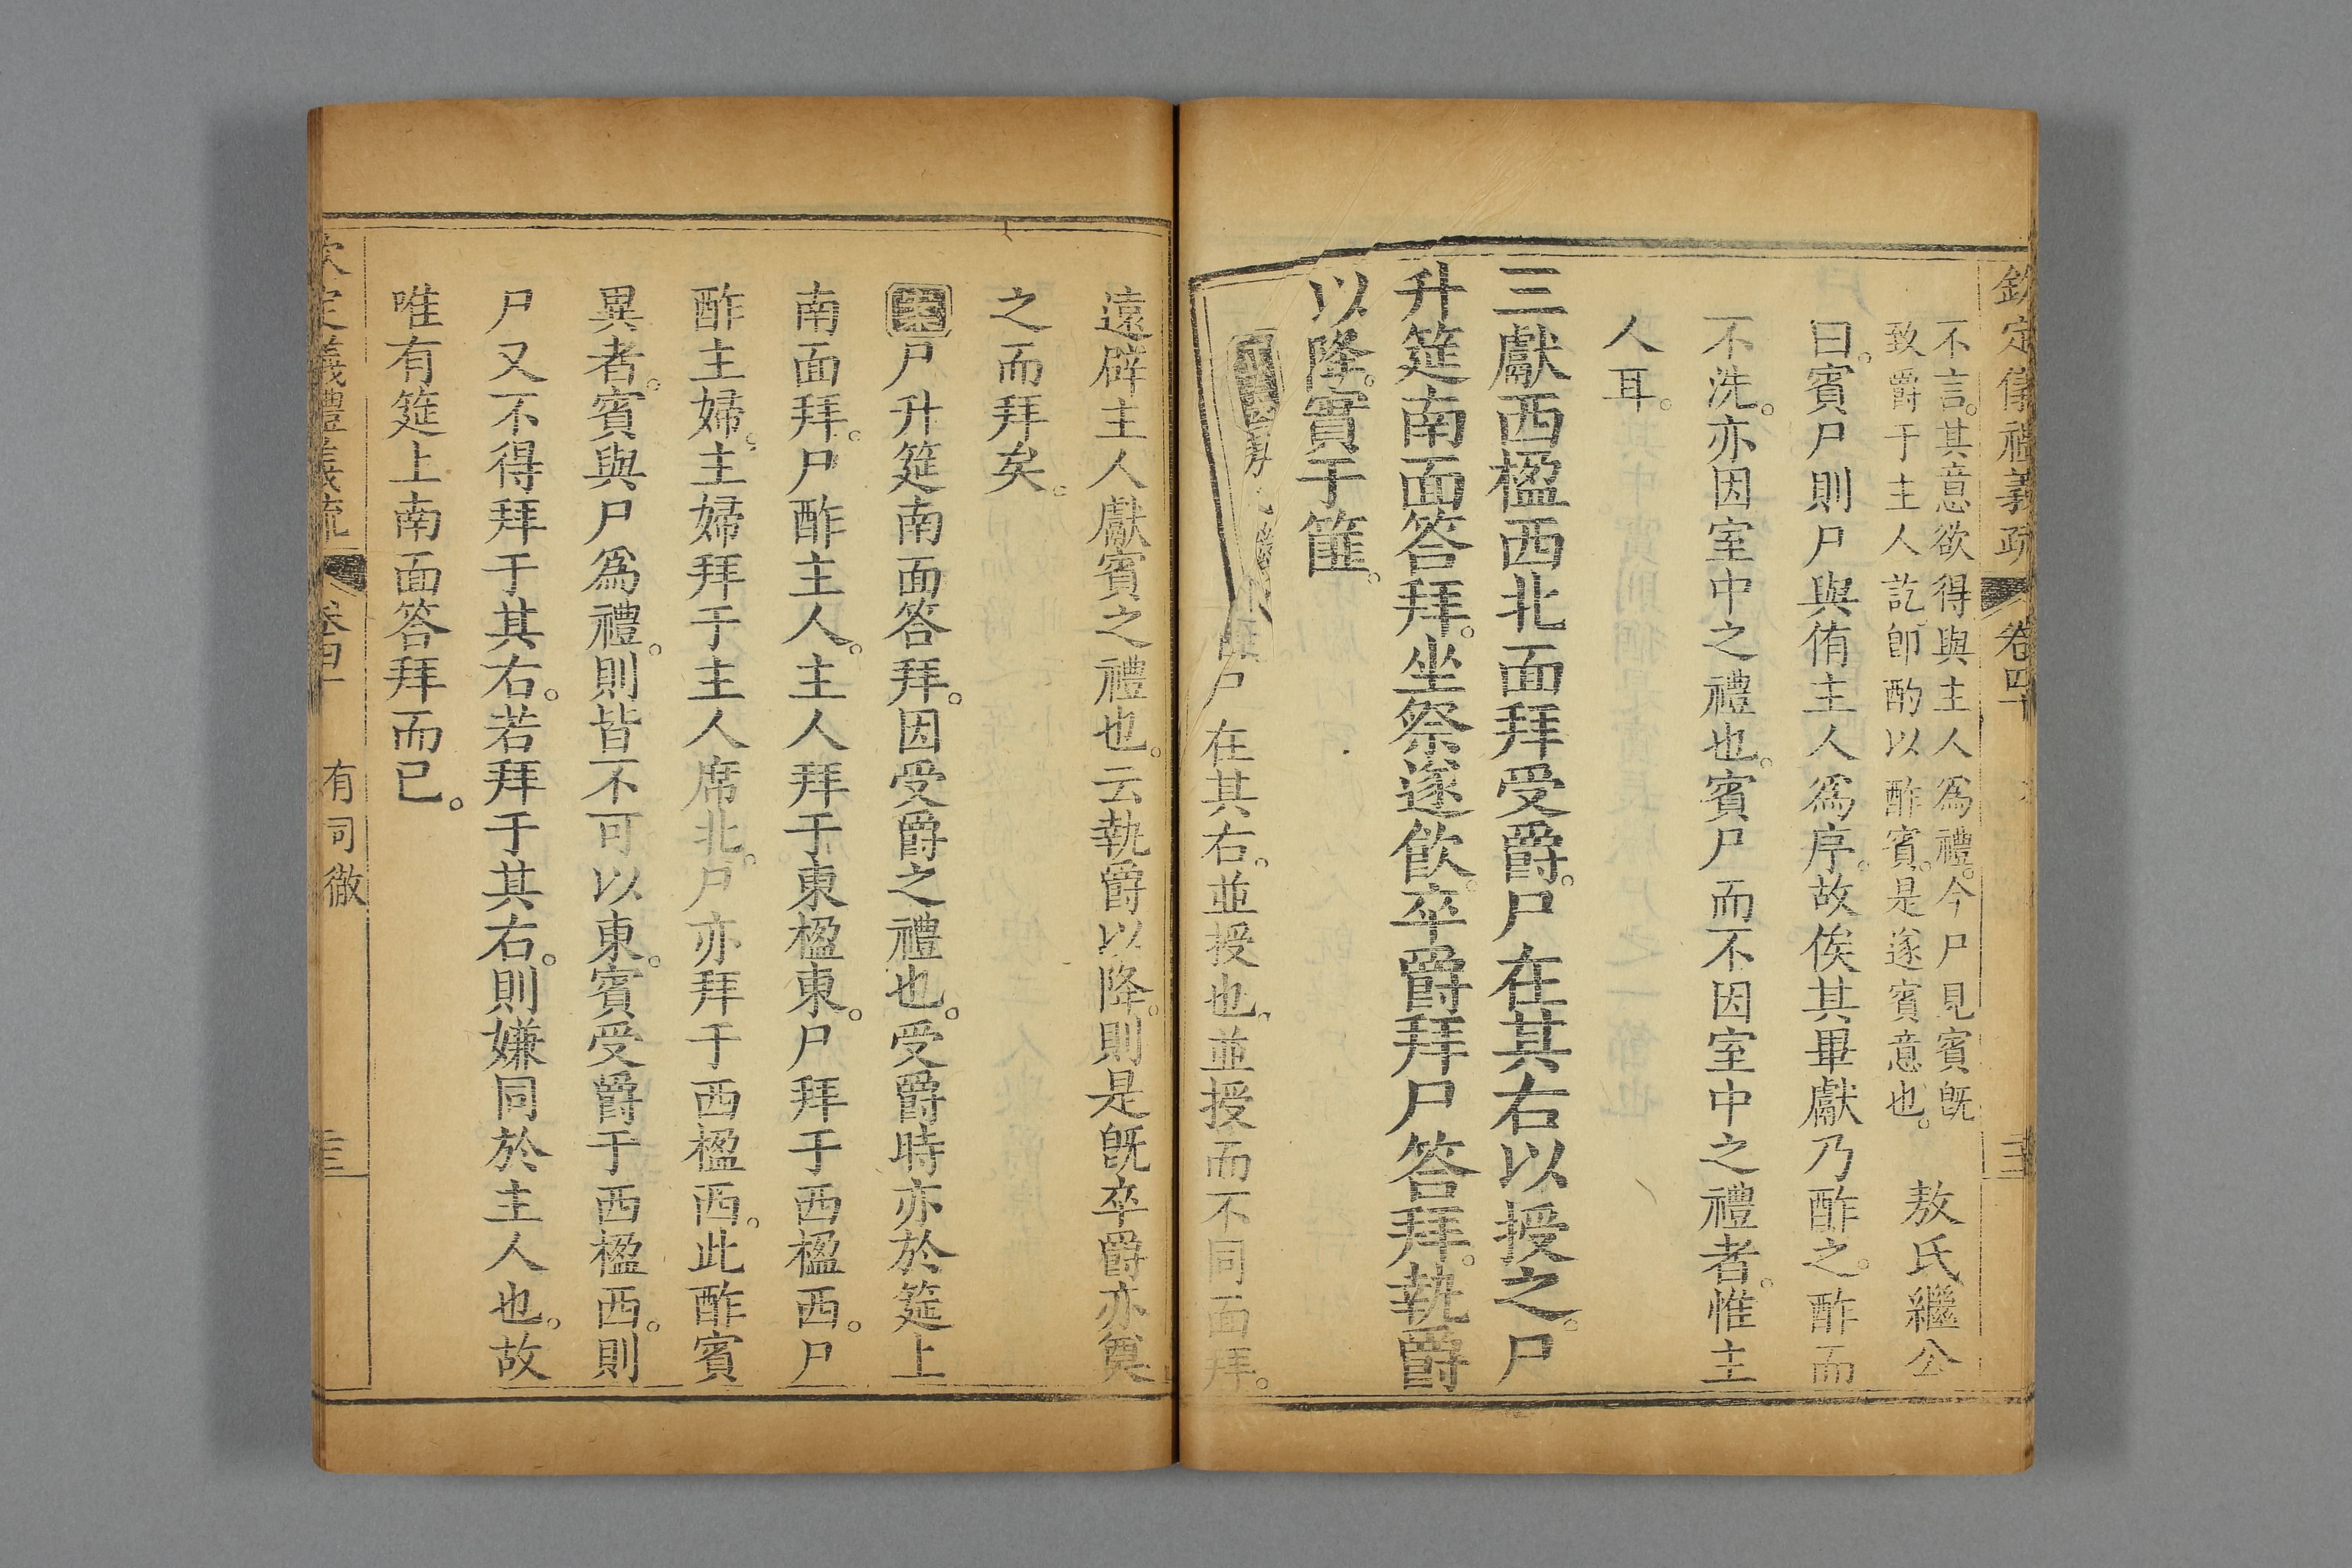 欽定儀禮義疏 卷四十
不言。其意欲得與主人爲禮。今尸見賓既
致爵于主人訖。卽酌以酢賓。是遂賓意也。
敖氏繼公
曰。賓尸則尸與侑主人爲序。故俟其畢獻乃酢之。酢而
不洗。亦因室中之禮也。賓尸而不因室中之禮者。惟主
人耳。
三獻西楹西北面拜受爵。尸在其右以授之。尸
升筵南面答拜。坐祭遂飲。卒爵拜尸答拜。執爵
以降。實于篚。
尸在其右。並授也。並授而不同面拜。
遠辟主人獻賓之禮也。云執爵以降。則是旣卒爵亦奠
之而拜矣。
案尸升筵南面答拜。因受爵之禮也。受爵時亦於筵上
南面拜。尸酢主人。主人拜于東楹東。尸拜于西楹西。尸
酢主婦。主婦拜于主人席北。尸亦拜于西楹西。此酢賓
異者。賓與尸爲禮。則皆不可以東。賓受爵于西楹西。則
尸又不得拜于其右。若拜于其右。則嫌同於主人也。故
唯有筵上南面答拜而已。
欽定義禮義疏 卷四十 有司徹